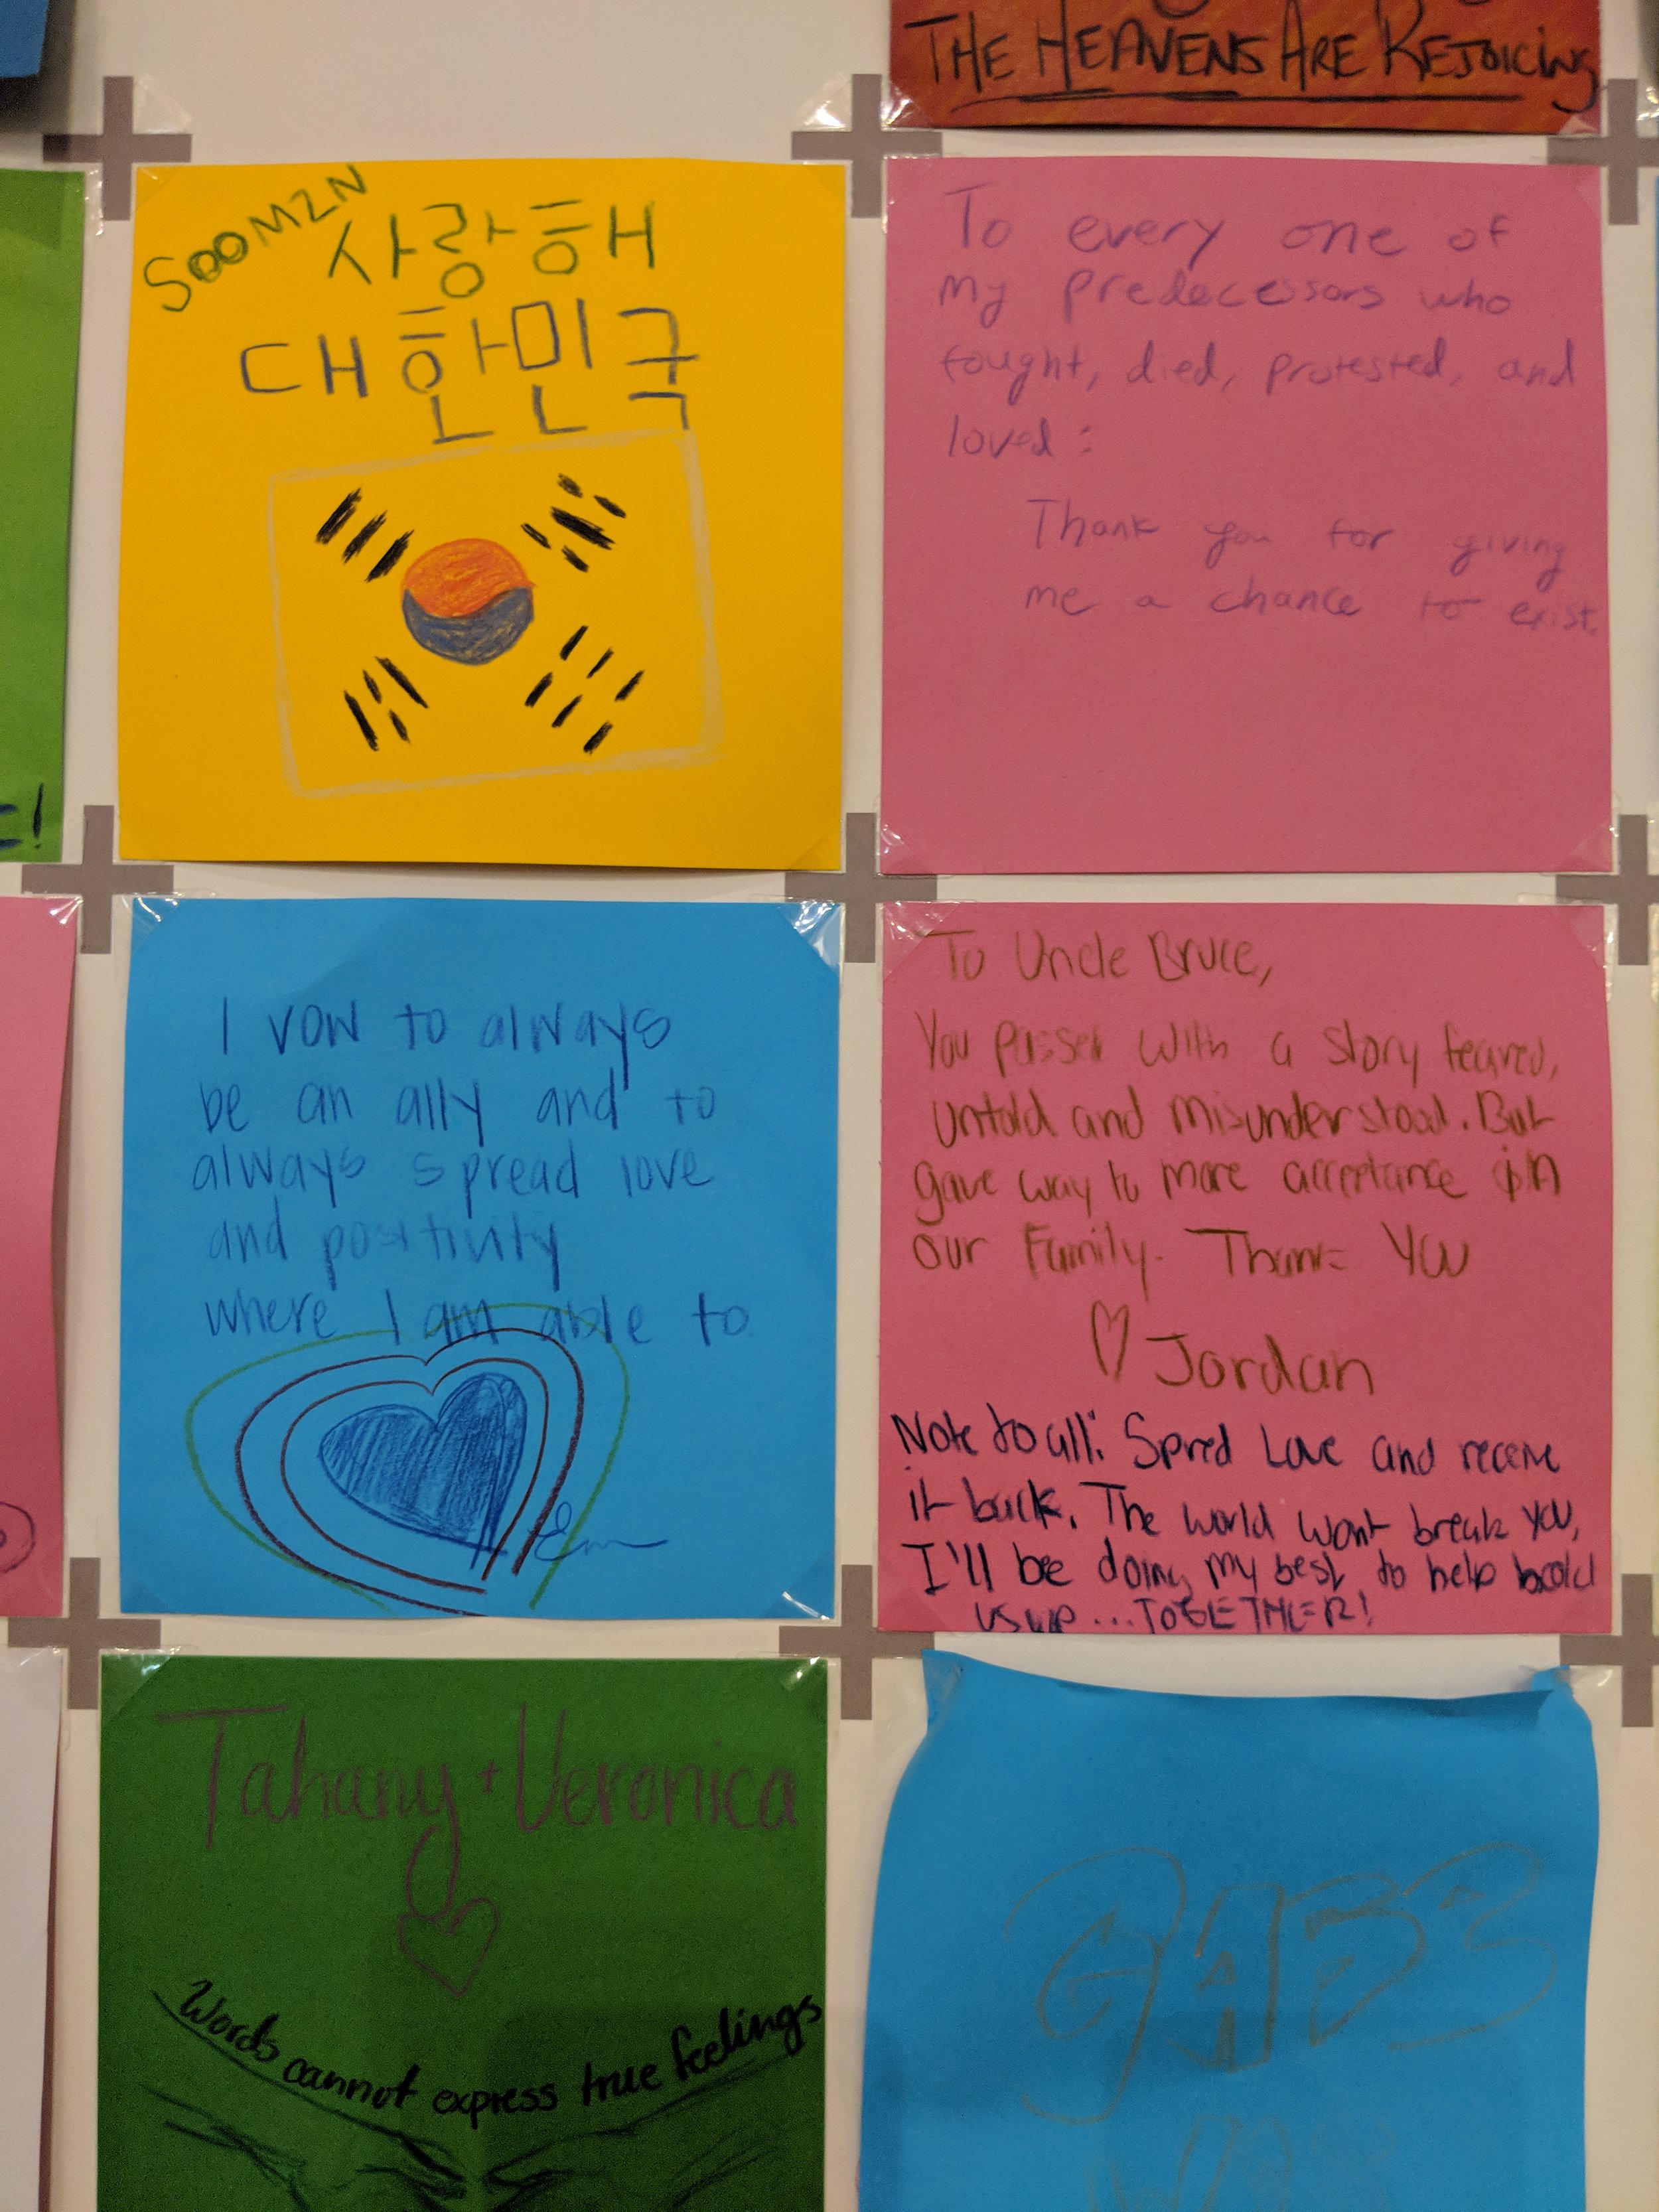 THE HEAVENS ARE REJOICING
SOOMZN
사랑해
대한민국
To every one of
my predecessors who
fought, died, protested, and
loved:
Thank you for giving
me a chance to exist.
I vow to always
be an ally and to
always spread love
and positivity
where I am able to.
To Uncle Bruce,
You passed with a story feared,
untold and misunderstood. But
gave way to more acceptance in
our Family. Thank You
Jordan
Note to all: Spred Love and receive
it back. The world wont break you,
I'll be doing my best to help build
us up...TOGETHER!
Tahany + Veronica
Words cannot express true feelings